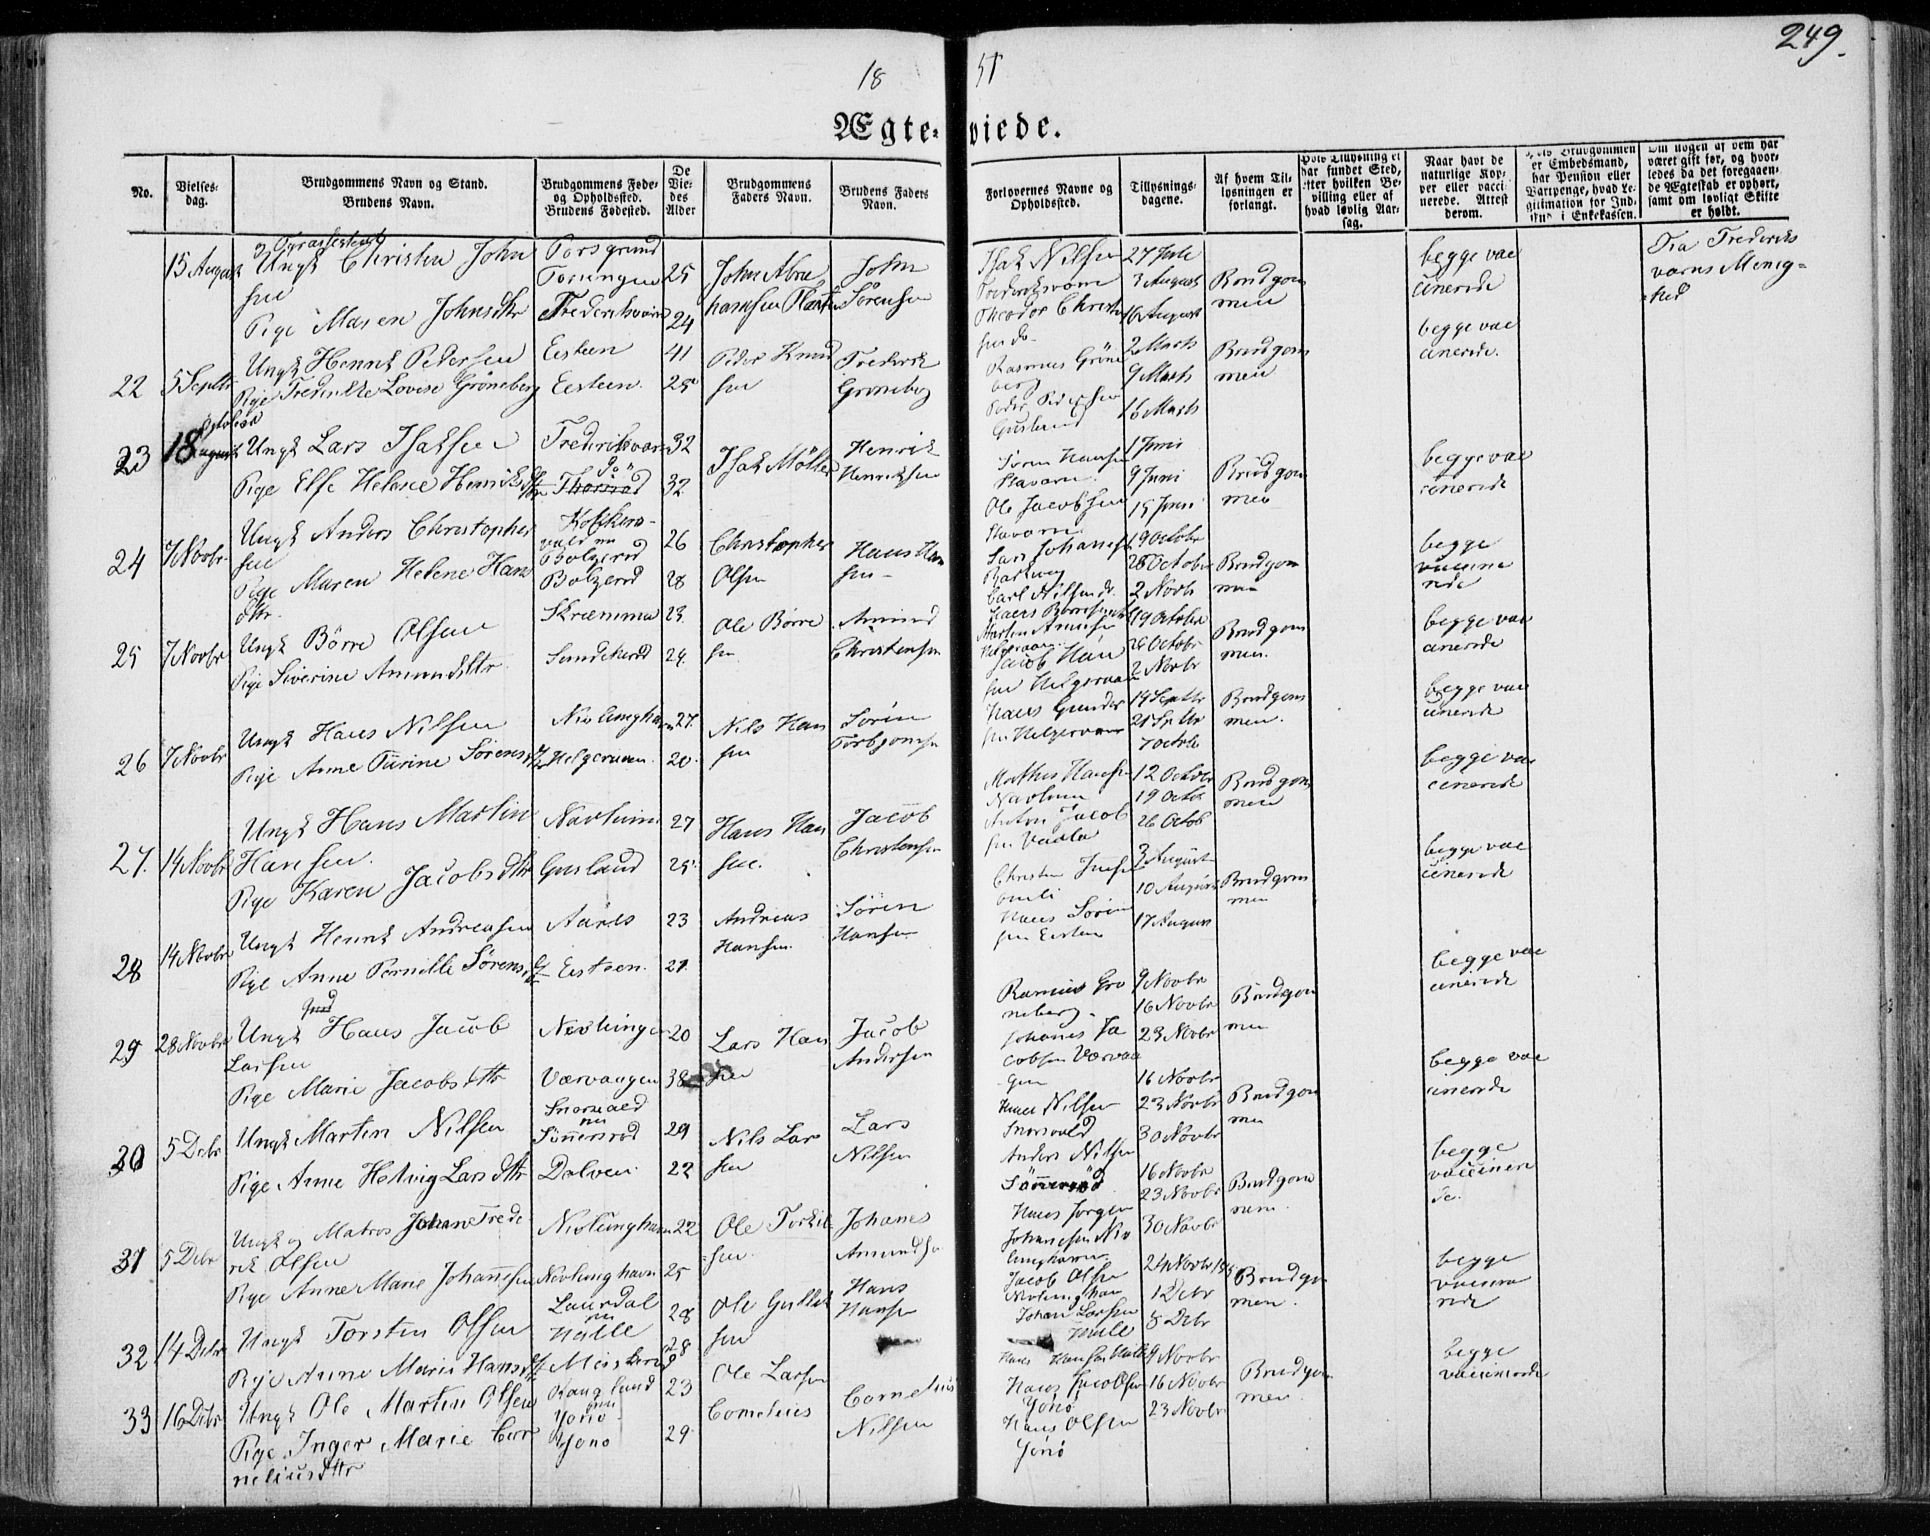 249.
18 51
Ægte-viede.
No.
Vielses-
dag.
Brudgommens Navn og Stand.
Brudens Navn.
Brudgommens Føde-
og Opholdssted.
Brudens Fødested.
De
Vie-
des
Alder
Brudgommens
Faders Navn.
Brudens Faders
Navn.
Forlovernes Navne og
Opholdssted.
Tillysnings-
dagene.
Af hvem Til-
lysningen er
forlangt.
har fundet Sted,
efter hvilken Be-
villing eller af
hvad lovlig Aar-
sag.
Naar havt de
naturlige Kop-
per eller vacci-
nerede. Attest
derom.
er Embedsmand,
har Pension eller
Vartpenge, hvad Le-
gitimation for Ind-
skud i Enkekassen.
Om nogen af dem har
været gift før, og hvor-
ledes da det foregaaen-
de Ægteskab er ophørt,
samt om lovligt Skifte
er holdt.
15 August
Ungk Christen John
sen
Pige Maren Johnsdtr
Porsgrund
Fredriksværn
25
24
John Abra
hamsen
John
Sørensen
Isak Nilsen
Frederiksværn
Theodor Christen
sen do
27 Juli
3 August
10 August
Brudgom
men
begge vac
cinerede
Fra Frederiks
værns Menig=
hed
22
5 Septbr
Ungk Henrik Pedersen
Pige Fredrikke Lovise Grøneberg
Eesteen
Eesteen.
41
25
Peder Knud
sen
Frederik
Groneberg
Rasmus Grøne
berg
Peder Pedersen
Gusland
2 Marts
9 Marts
16 Marts
Brudgom
men
begge vac
cinerede.
23
18 October
Ungk Lars Isaksen
Pige Else Helene Henriksdtr
Frederiksværn
do
32
32
Isak Møller
Henrik
Henriksen
Søren Hansen
Staværn.
Ole Jacobsen
Staværn
1 Juni
9 Juni
15 Juni
Brudgom
men
begge vac
cinerede
24
7 Novbr.
Ungk Anders Christopher
sen
Pige Maren Helene Hans
dtr.
Bolzerød
Bolzerød
26
28
Christopher
Olsen
Hans Han
sen
Lars Johansen
Carl Nilsen do.
19 October
26 October
2 Novb
Brudgom
men
begge
vaccine
rede
25
7 Novbr
Ungk Børre Olsen
Pige Siverine Amundsdtr
Skræmma
Sundskerød
23.
24.
Ole Børre
sen
Amund
Christensen
Martin Amundsen
Helgeraaen
Jacob Han
sen Helgeraaen
19 Octobr
26 Octobr
2 Novbr
Brudgom
men.
begge vac
cinerede
26
7 Novbr
Ungk Hans Nilsen
Pige Anne Turine Sørensdtr
Nevlunghavn
Helgeraaen.
27.
20.
Nils Han
sen
Søren
Torbjønsen
Hans Gunder
sen Helgeraaen
19 Septbr
21 Septbr
7 Octbr
Brudgom
men.
begge vac
cinerede
27.
14 Novbr
Ungk Hans Martin
Hansen.
Pige Karen Jacobsdtr
Nevlunn
Gusland
27
25
Hans Han
sen.
Jacob
Christensen
Mathis Hansen
Nevlunn
Anton Jacob
sen Vadla
12 Octobr
19 Octob
26 Octob
Brudgom
men
begge vac
cinerede
28
14 Novbr
Ungk Henrik Andreasen
Pige Anne Pernille Sørensdtr
Aarø
Eesteen.
23
21
Andreas
Hansen.
Søren
Hansen
Christen
Hans Søren
sen Eesteen
3 August
10 August
17 August
Brudgom
men
begge vac
cinerede
29
28 Novbr
Ungk Hans Jacob
Larsen
Pige Marie Jacobsdtr
Nevlungen
Værvaagen
20
38
Lars Han
sen
Jacob
Andersen
Rasmus Gro
neberg.
Johanes Ja
cobsen Værvaa
gen
9 Novbr
16 Novbr
23 Novbr
Brudgom
men
begge vac
cinerede
30
5 Debr
Ungk Martin Nilsen
Pige Anne Helvig Larsdtr
Snorsvald
nu
Sønnersrød
Dolven
29
22
Nils Lar
sen
Lars
Nilsen
Hans Nilsen
Snorsvald
Anders Nilsen
Sønnersrød
16 Novbr
23 Novbr
30 Novbr
Brudgom
men
begge vac
cinerede
31
5 Debr
Ungk og Matros Johan Frede
rik Olsen
Pige Anne Marie Johannesen
Nevlunghavn
Nevlunghavn
22
25
Ole Torkil
sen.
Johanes
Amundsen
Hans Jørgen
Johannesen Nev
lunghavn
Jacob Olsen
Nevlunghavn
16 Novbr
23 Novbr
30 Novbr
Brudgom
men.
begge
vaccinere
de.
32
14 Debr
Ungk Torsten Olsen
Pige Anne Marie Hansdtr
Laurdal
nu
Halle
28
28
Ole Gullik
sen
Hans
Hansen
Johan Larsen
Halle
Hans Hansen Halle
24 Novbr
1 Debr
8 Debr
Brudgom
men.
begge
vaccine
rede
33
16 Debr
Ungk Ole Martin Olsen
Pige Inger Marie Cor
neliusdtr
nu
Jono
Jono
23
29
Ole Larsen
Cornelius
Cornelius
Nilsen
Hans Jacobsen
Jono
Hans Olsen
Jono
9 Novbr
16 Novbr
23 Novbr
Brudgom
men
begge
vaccinerede